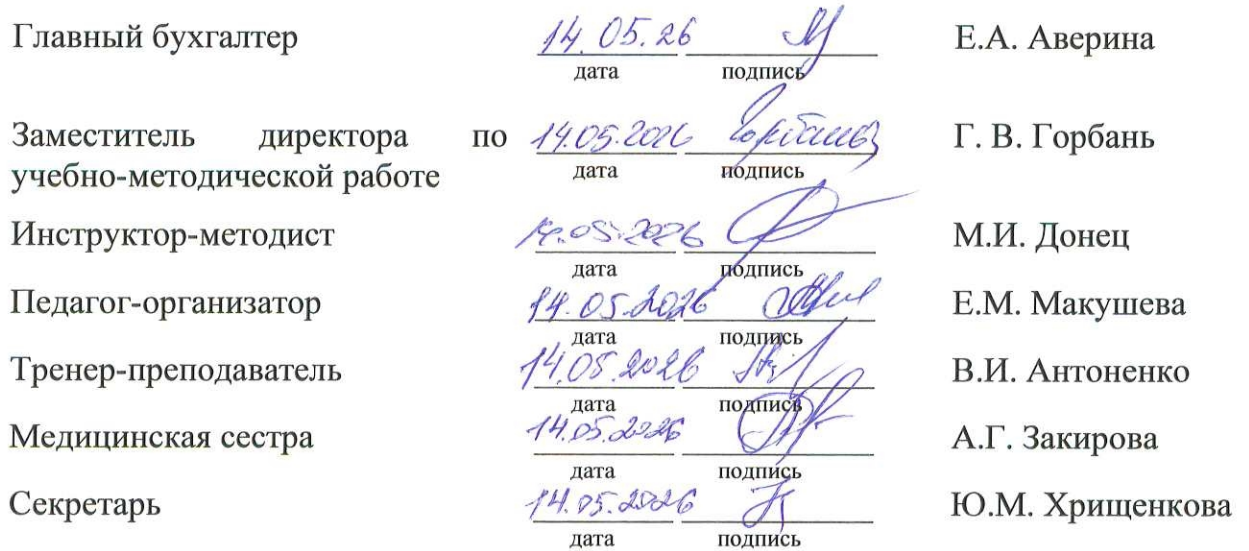 Главный бухгалтер 14.05.26 Е.А. Аверина
дата подпись
Заместитель директора по 14.05.2026 Горбань Г. В. Горбань
учебно-методической работе дата подпись
Инструктор-методист 14.05.2026 М.И. Донец
дата подпись
Педагог-организатор 14.05.2026 Е.М. Макушева
дата подпись
Тренер-преподаватель 14.05.2026 В.И. Антоненко
дата подпись
Медицинская сестра 14.05.2026 А.Г. Закирова
дата подпись
Секретарь 14.05.2026 Ю.М. Хрищенкова
дата подпись